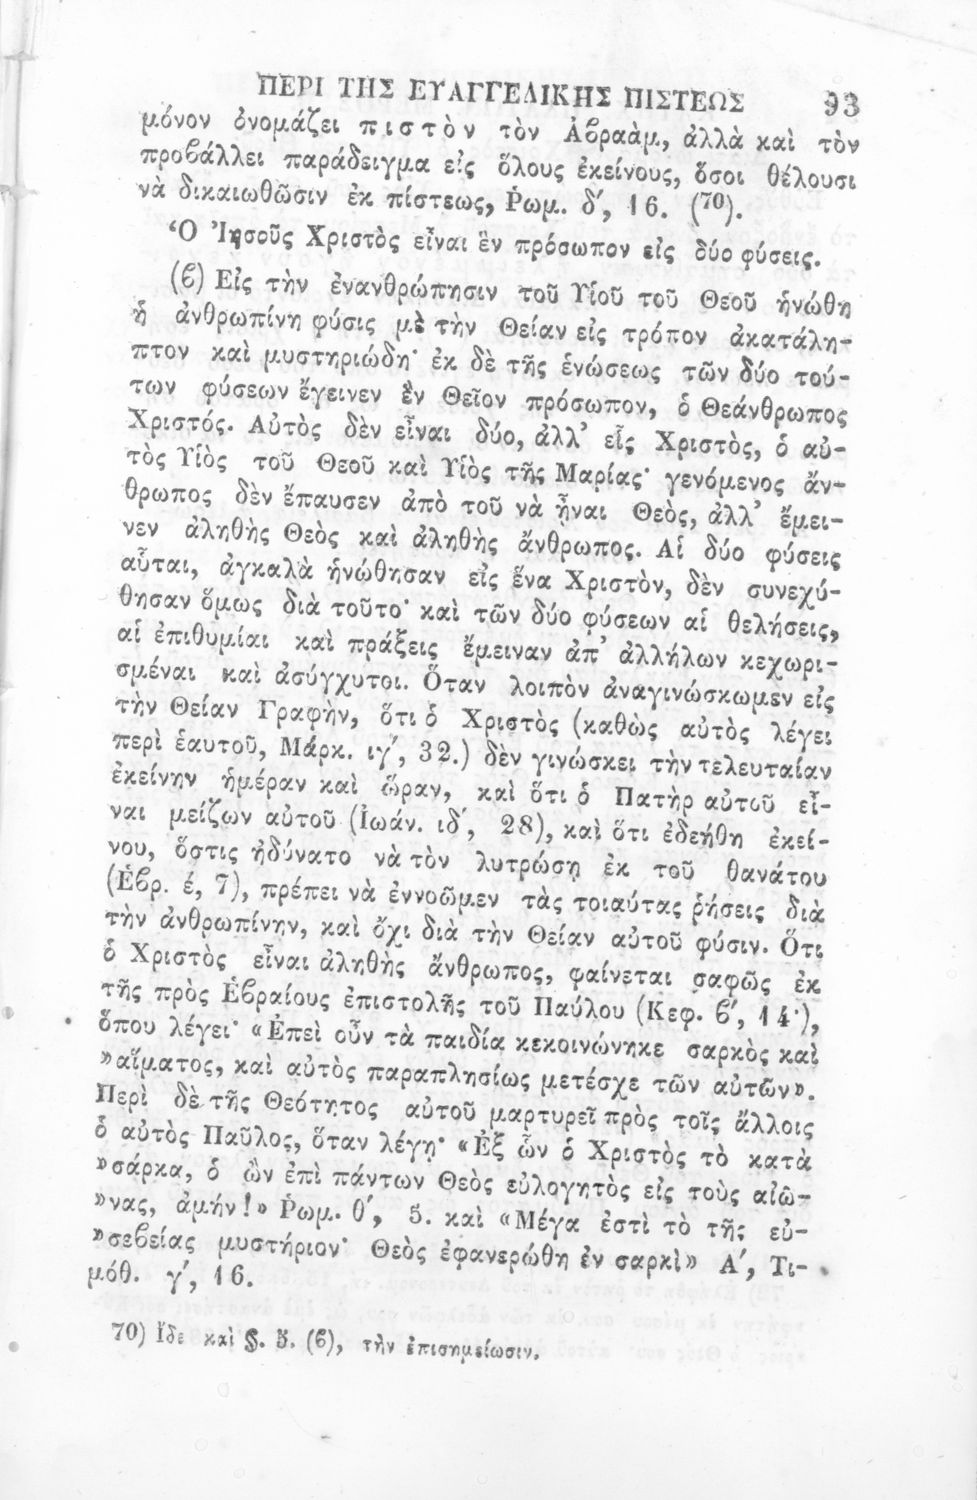 ΠΕΡΙ ΤΗΣ ΕΥΑΓΓΕΛΙΚΗΣ ΠΙΣΤΕΩΣ 93
μόνον ὀνομάζει πιστὸν τὸν Ἀβραὰμ, ἀλλὰ καὶ τὸν
προβάλλει παράδειγμα εἰς ὅλους ἐκείνους, ὅσοι θέλουσι
νὰ δικαιωθῶσιν ἐκ πίστεως, Ῥωμ. δ′, 16. (70).
Ὁ Ἰησοῦς Χριστὸς εἶναι ἓν πρόσωπον εἰς δύο φύσεις.
(β) Εἰς τὴν ἐνανθρώπησιν τοῦ Υἱοῦ τοῦ Θεοῦ ἡνώθη
ἡ ἀνθρωπίνη φύσις μὲ τὴν Θείαν εἰς τρόπον ἀκατάλη-
πτον καὶ μυστηριώδη· ἐκ δὲ τῆς ἑνώσεως τῶν δύο τού-
των φύσεων ἔγεινεν ἓν Θεῖον πρόσωπον, ὁ Θεάνθρωπος
Χριστός. Αὐτὸς δὲν εἶναι δύο, ἀλλ' εἷς Χριστὸς, ὁ αὐ-
τὸς Υἱὸς τοῦ Θεοῦ καὶ Υἱὸς τῆς Μαρίας· γενόμενος ἄν-
θρωπος δὲν ἔπαυσεν ἀπὸ τοῦ νὰ ἦναι Θεὸς, ἀλλ' ἔμει-
νεν ἀληθὴς Θεὸς καὶ ἀληθὴς ἄνθρωπος. Αἱ δύο φύσεις
αὗται, ἀγκαλὰ ἡνώθησαν εἰς ἕνα Χριστὸν, δὲν συνεχύ-
θησαν ὅμως διὰ τοῦτο· καὶ τῶν δύο φύσεων αἱ θελήσεις,
αἱ ἐπιθυμίαι καὶ πράξεις ἔμειναν ἀπ' ἀλλήλων κεχωρι-
σμέναι καὶ ἀσύγχυτοι. Ὅταν λοιπὸν ἀναγινώσκωμεν εἰς
τὴν Θείαν Γραφὴν, ὅτι ὁ Χριστὸς (καθὼς αὐτὸς λέγει
περὶ ἑαυτοῦ, Μάρκ. ιγ′, 32.) δὲν γινώσκει τὴν τελευταίαν
ἐκείνην ἡμέραν καὶ ὥραν, καὶ ὅτι ὁ Πατὴρ αὐτοῦ εἶ-
ναι μείζων αὐτοῦ (Ἰωάν. ιδ′, 28), καὶ ὅτι ἐδεήθη ἐκεί-
νου, ὅστις ἠδύνατο νὰ τὸν λυτρώσῃ ἐκ τοῦ θανάτου
(Ἑβρ. έ, 7), πρέπει νὰ ἐννοῶμεν τὰς τοιαύτας ῥήσεις διὰ
τὴν ἀνθρωπίνην, καὶ ὄχι διὰ τὴν Θείαν αὐτοῦ φύσιν. Ὅτι
ὁ Χριστὸς εἶναι ἀληθὴς ἄνθρωπος, φαίνεται σαφῶς ἐκ
τῆς πρὸς Ἑβραίους ἐπιστολῆς τοῦ Παύλου (Κεφ. β′, 14·),
ὅπου λέγει· «Ἐπεὶ οὖν τὰ παιδία κεκοινώνηκε σαρκὸς καὶ
»αἵματος, καὶ αὐτὸς παραπλησίως μετέσχε τῶν αὐτῶν».
Περὶ δὲ τῆς Θεότητος αὐτοῦ μαρτυρεῖ πρὸς τοῖς ἄλλοις
ὁ αὐτὸς Παῦλος, ὅταν λέγῃ· «Ἐξ ὧν ὁ Χριστὸς τὸ κατὰ
»σάρκα, ὁ ὢν ἐπὶ πάντων Θεὸς εὐλογητὸς εἰς τοὺς αἰῶ-
»νας, ἀμήν!» Ῥωμ. θ′, 5. καὶ «Μέγα ἐστὶ τὸ τῆς εὐ-
»σεβείας μυστήριον· Θεὸς ἐφανερώθη ἐν σαρκὶ» Α′, Τι-
μόθ. γ′, 16.
70) Ἴδε καὶ §. 5. (β), τὴν ἐπισημείωσιν.